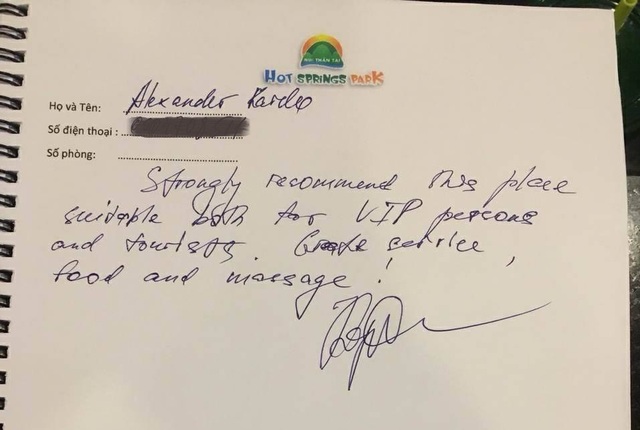 NÚI THẦN TÀI
HOT SPRINGS PARK
Họ và Tên: Alexander
Số điện thoại :
Số phòng:
Strongly recommend this place
suitable both for VIP persons
and tourists. service,
food and massage!